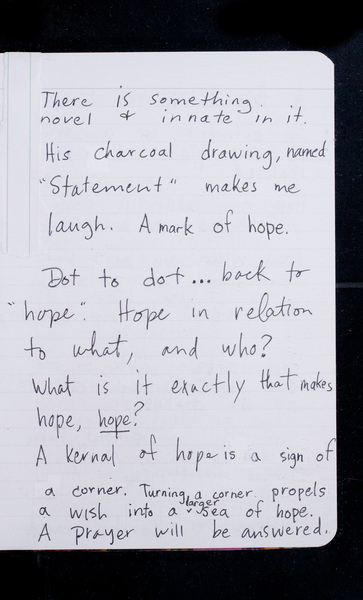 There is something
novel & innate in it.
His charcoal drawing, named
"Statement" makes me
laugh. A mark of hope.
Dot to dot... back to
"hope". Hope in relation
to what, and who?
What is it exactly that makes
hope, hope?
A kernal of hope is a sign of
a corner. Turning a corner propels
a wish into a larger sea of hope.
A prayer will be answered.